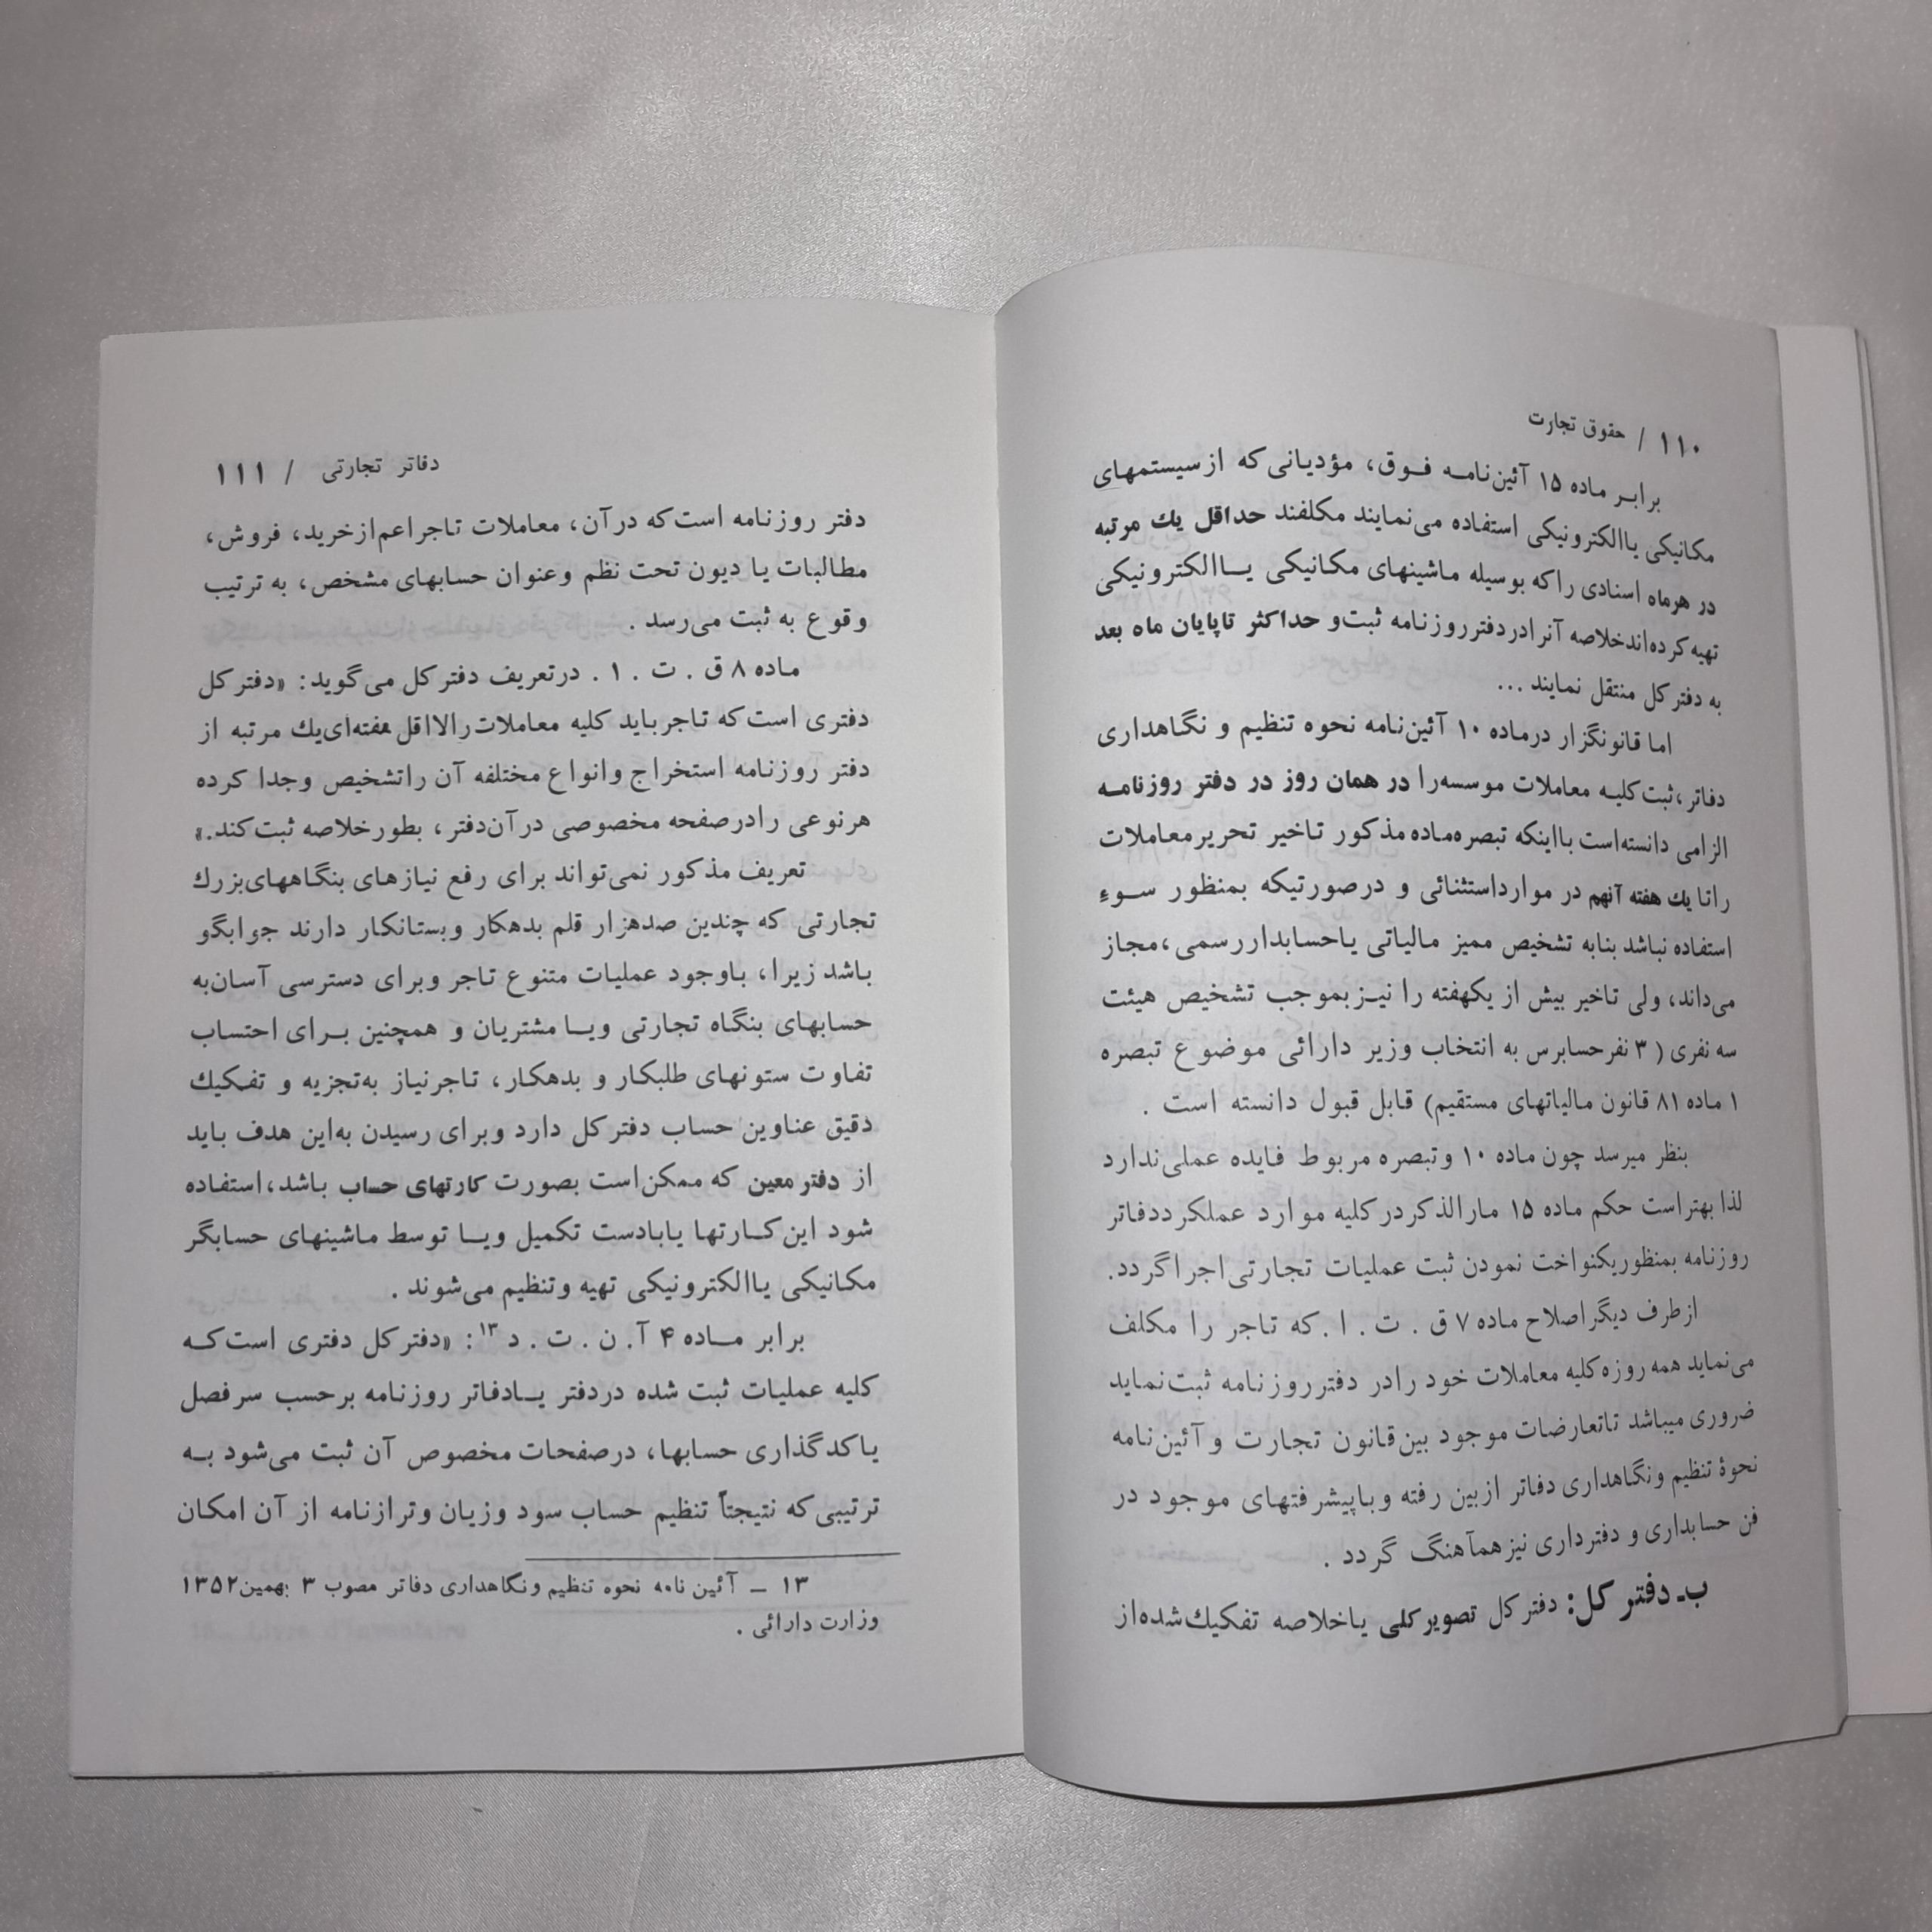 ۱۱۰ / حقوق تجارت
برابـر ماده ۱۵ آئین‌نامـه فـوق، مؤدیانی‌که از سیستمهای
مکانیکی یاالکترونیکی استفاده می‌نمایند مکلفند حداقل یك مرتبه
در هرماه اسنادی راکه بوسیله ماشینهای مکانیکی یـاالکترونیکی
تهیه کرده‌اندخلاصه آنرادردفترروزنامه ثبت‌و حداکثر تاپایان ماه بعد
به دفترکل منتقل نمایند ...
اما قانونگزار درماده ۱۰ آئین‌نامه نحوه تنظیم و نگاهداری
دفاتر،ثبت‌کلیـه معاملات موسسه‌را در همان روز در دفتر روزنامـه
الزامی دانسته‌است بااینکه تبصره‌ماده مذکور تاخیر تحریرمعاملات
راتا یك هفته آنهم در مواردأستثنائی و درصورتیکه بمنظور سـوء
استفاده نباشد بنابه تشخیص ممیز مالیاتی یاحسابداررسمی،مجاز
می‌داند، ولی تاخیر بیش از یکهفته را نیـزبموجب تشخیص هیئت
سه نفری ( ۳ نفرحسابرس به انتخاب وزیر دارائی موضوع تبصره
۱ ماده ۸۱ قانون مالیاتهای مستقیم) قابل قبول دانسته است .
بنظر میرسد چون ماده ۱۰ وتبصره مربوط فایده عملی‌ندارد
لذا بهتراست حکم ماده ۱۵ مارالذکردرکلیه موارد عملکرددفاتر
روزنامه بمنظوریکنواخت نمودن ثبت عملیات تجارتی‌اجراگردد.
ازطرف دیگراصلاح ماده ۷ ق . ت . ا .که تاجر را مکلف
می‌نماید همه روزه‌کلیه معاملات خود رادر دفترروزنامه ثبت‌نماید
ضروری میباشد تاتعارضات موجود بین‌قانون تجارت و آئین‌نامه
نحوۀ تنظیم ونگاهداری دفاتر ازبین رفته وباپیشرفتهای موجود در
فن حسابداری و دفترداری نیزهمآهنگ گردد .
ب‌ـ دفتر کل: دفترکل تصویرکلی یاخلاصه تفکیك‌شده‌از
دفاتر تجارتی / ۱۱۱
دفتر روزنامه است‌که درآن، معاملات تاجراعم‌ازخرید، فروش،
مطالبات یا دیون تحت نظم وعنوان حسابهای مشخص، به ترتیب
وقوع به ثبت می‌رسد .
ماده ۸ ق . ت . ۱ . درتعریف دفترکل می‌گوید: «دفترکل
دفتری است‌که تاجرباید کلیه معاملات‌راالااقل هفته‌ای‌یك مرتبه از
دفتر روزنامه استخراج وانواع مختلفه آن راتشخیص وجدا کرده
هرنوعی رادرصفحه مخصوصی درآن‌دفتر، بطورخلاصه ثبت‌کند.»
تعریف مذکور نمی‌تواند برای رفع نیازهای بنگاههای‌بزرك
تجارتی که چندین صدهزار قلم بدهکار وبستانکار دارند جوابگو
باشد زیرا، باوجود عملیات متنوع تاجر وبرای دسترسی آسان‌به
حسابهای بنگاه تجارتی ویـا مشتریان و همچنین بـرای احتساب
تفاوت ستونهای طلبکار و بدهکار، تاجرنیاز به‌تجزیه و تفکیك
دقیق عناوین حساب دفترکل دارد وبرای رسیدن به‌این هدف باید
از دفتر معین که ممکن‌است بصورت کارتهای حساب باشد،استفاده
شود این‌کـارتها یابادست تکمیل ویـا توسط ماشینهای حسابگر
مکانیکی یاالکترونیکی تهیه وتنظیم می‌شوند .
برابر مـاده ۴ آ. ن . ت . د ۱۳: «دفترکل دفتری است‌کـه
کلیه عملیات ثبت شده دردفتر یـادفاتر روزنامه برحسب سرفصل
یاکدگذاری حسابها، درصفحات مخصوص آن ثبت می‌شود بـه
ترتیبی‌که نتیجتاً تنظیم حساب سود وزیان وترازنامه از آن امکان
۱۳ ــ آئین نامه نحوه تنظیم ونگاهداری دفاتر مصوب ۳ بهمین۱۳۵۲
وزارت دارائی .